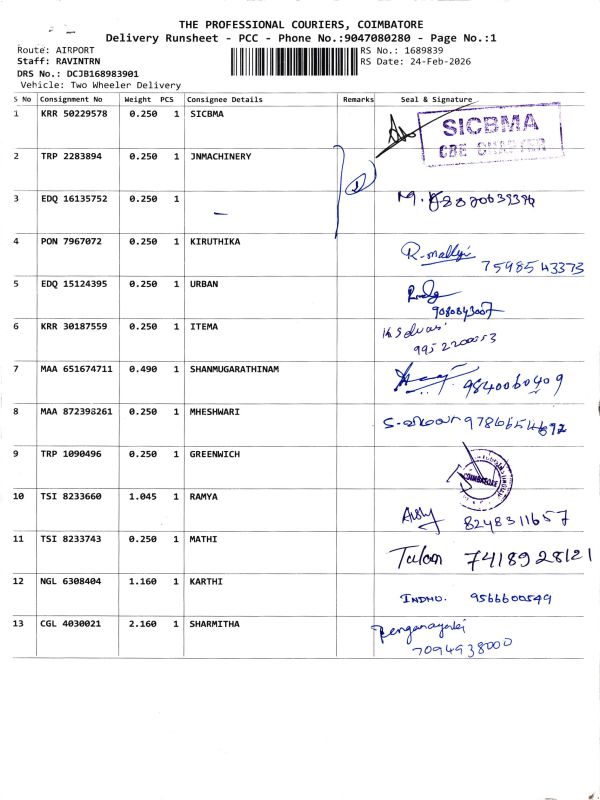 THE PROFESSIONAL COURIERS, COIMBATORE
Delivery Runsheet - PCC - Phone No.:9047080280 - Page No.:1
Route: AIRPORT
RS No.: 1689839
Staff: RAVINTRN
RS Date: 24-Feb-2026
DRS No.: DCJB168983901
Vehicle: Two Wheeler Delivery
S No Consignment No Weight PCS Consignee Details Remarks Seal & Signature
1 KRR 50229578 0.250 1 SICBMA
SICBMA
CBE CHAPTER
2 TRP 2283894 0.250 1 JNMACHINERY
3 EDQ 16135752 0.250 1
4 PON 7967072 0.250 1 KIRUTHIKA R.mallgi 7598543373
5 EDQ 15124395 0.250 1 URBAN 9080843007
6 KRR 30187559 0.250 1 ITEMA K Selvas 9952200053
7 MAA 651674711 0.490 1 SHANMUGARATHINAM 9840060409
8 MAA 872398261 0.250 1 MHESHWARI 9786654692
9 TRP 1090496 0.250 1 GREENWICH COIMBATORE
10 TSI 8233660 1.045 1 RAMYA 8248311657
11 TSI 8233743 0.250 1 MATHI 7418928121
12 NGL 6308404 1.160 1 KARTHI INDHU. 9566600549
13 CGL 4030021 2.160 1 SHARMITHA Renganayaki
7094938000